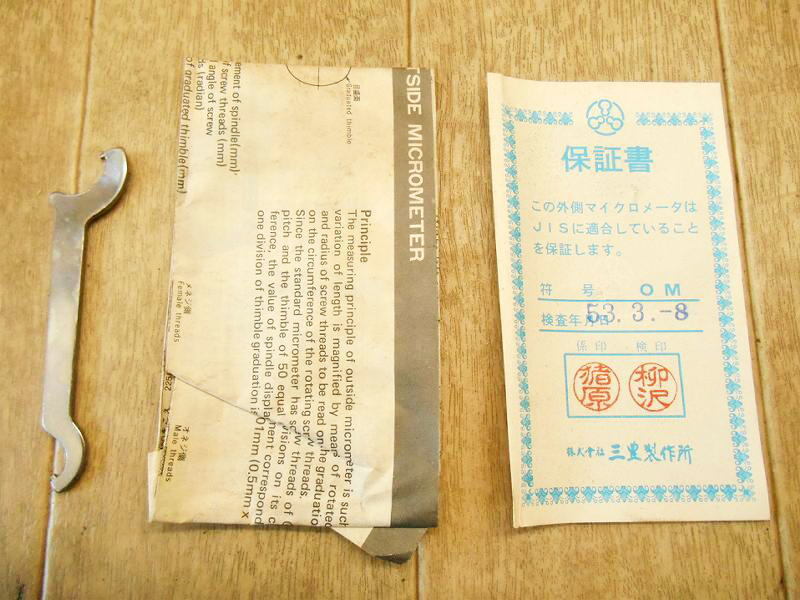 TSIDE MICROMETER
Principle
The measuring principle of outside micrometer is such
variation of length is magnified by means of rotated
and radius of screw threads to be read on the graduatio
on the circumference of the rotating screw threads.
Since the standard micrometer has screw threads of
pitch and the thimble of 50 equal visions on its c
ference, the value of spindle displa ment correspond
one division of thimble graduation is 01mm (0.5mm x
目盛面
Graduated thimble
ement of spindle(mm)
f screw threads (mm)
angle of screw
ds (radian)
of graduated thimble(mm)
メネジ側
Female threads
オネジ側
Male threads
保証書
この外側マイクロメータは
JISに適合していること
を保証します。
符号 OM
検査年月日 53.3.-8
係印 検印
猪原 柳沢
株式會社 三豊製作所